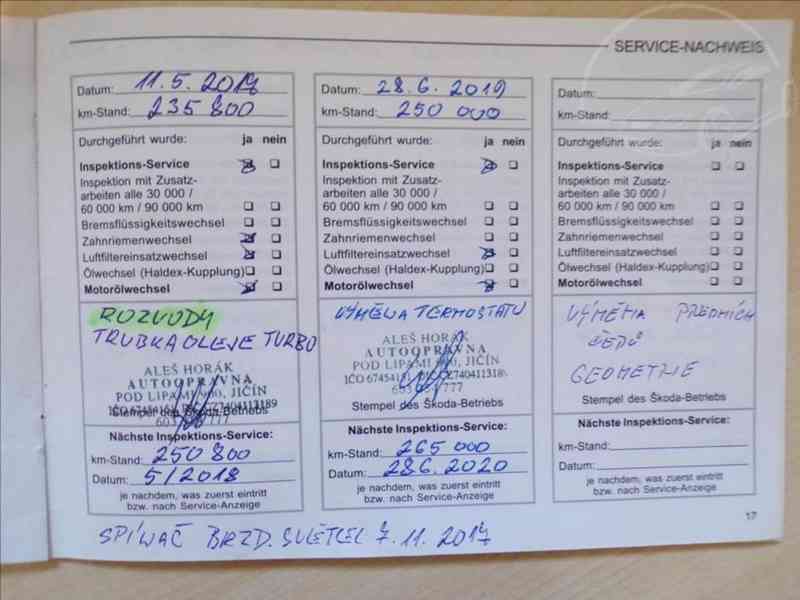 SERVICE-NACHWEIS
Datum: 11.5.2017
km-Stand: 235 800
Durchgeführt wurde: ja nein
Inspektions-Service
Inspektion mit Zusatz-
arbeiten alle 30 000 /
60 000 km / 90 000 km
Bremsflüssigkeitswechsel
Zahnriemenwechsel
Luftfiltereinsatzwechsel
Ölwechsel (Haldex-Kupplung)
Motorölwechsel
ROZVODY
TRUBKA OLEJE TURBO
ALEŠ HORÁK
AUTOOPRAVNA
POD LIPAMI JIČÍN
Stempel des Škoda-Betriebs
Nächste Inspektions-Service:
km-Stand: 250 800
Datum: 5/2018
je nachdem, was zuerst eintritt
bzw. nach Service-Anzeige
Datum: 28.6.2019
km-Stand: 250 000
Durchgeführt wurde: ja nein
Inspektions-Service
Inspektion mit Zusatz-
arbeiten alle 30 000 /
60 000 km / 90 000 km
Bremsflüssigkeitswechsel
Zahnriemenwechsel
Luftfiltereinsatzwechsel
Ölwechsel (Haldex-Kupplung)
Motorölwechsel
VÝMĚNA TERMOSTATU
ALEŠ HORÁK
AUTOOPRAVNA
POD LIPAMI JIČÍN
Stempel des Škoda-Betriebs
Nächste Inspektions-Service:
km-Stand: 265 000
Datum: 28.6.2020
je nachdem, was zuerst eintritt
bzw. nach Service-Anzeige
Datum:
km-Stand:
Durchgeführt wurde: ja nein
Inspektions-Service
Inspektion mit Zusatz-
arbeiten alle 30 000 /
60 000 km / 90 000 km
Bremsflüssigkeitswechsel
Zahnriemenwechsel
Luftfiltereinsatzwechsel
Ölwechsel (Haldex-Kupplung)
Motorölwechsel
VÝMĚNA PŘEDNÍCH
ČEPŮ
GEOMETRIE
Stempel des Škoda-Betriebs
Nächste Inspektions-Service:
km-Stand:
Datum:
je nachdem, was zuerst eintritt
bzw. nach Service-Anzeige
17
SPÍNAČ BRZD. SVĚTEL 7.11.2017